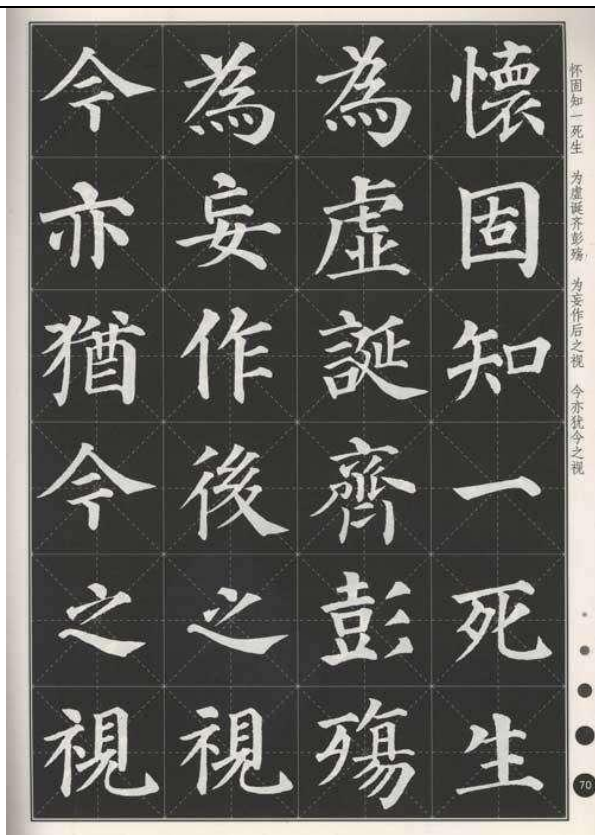 懷固知一死生
為虛誕齊彭殤
為妄作後之視
今亦猶今之視
怀固知一死生 为虚诞齐彭殇 为妄作后之视 今亦犹今之视
70